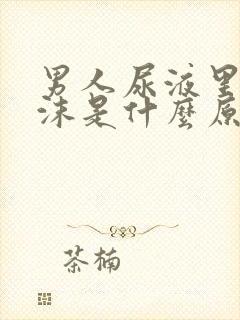 男人尿液里
沫是什麼原
茶楠